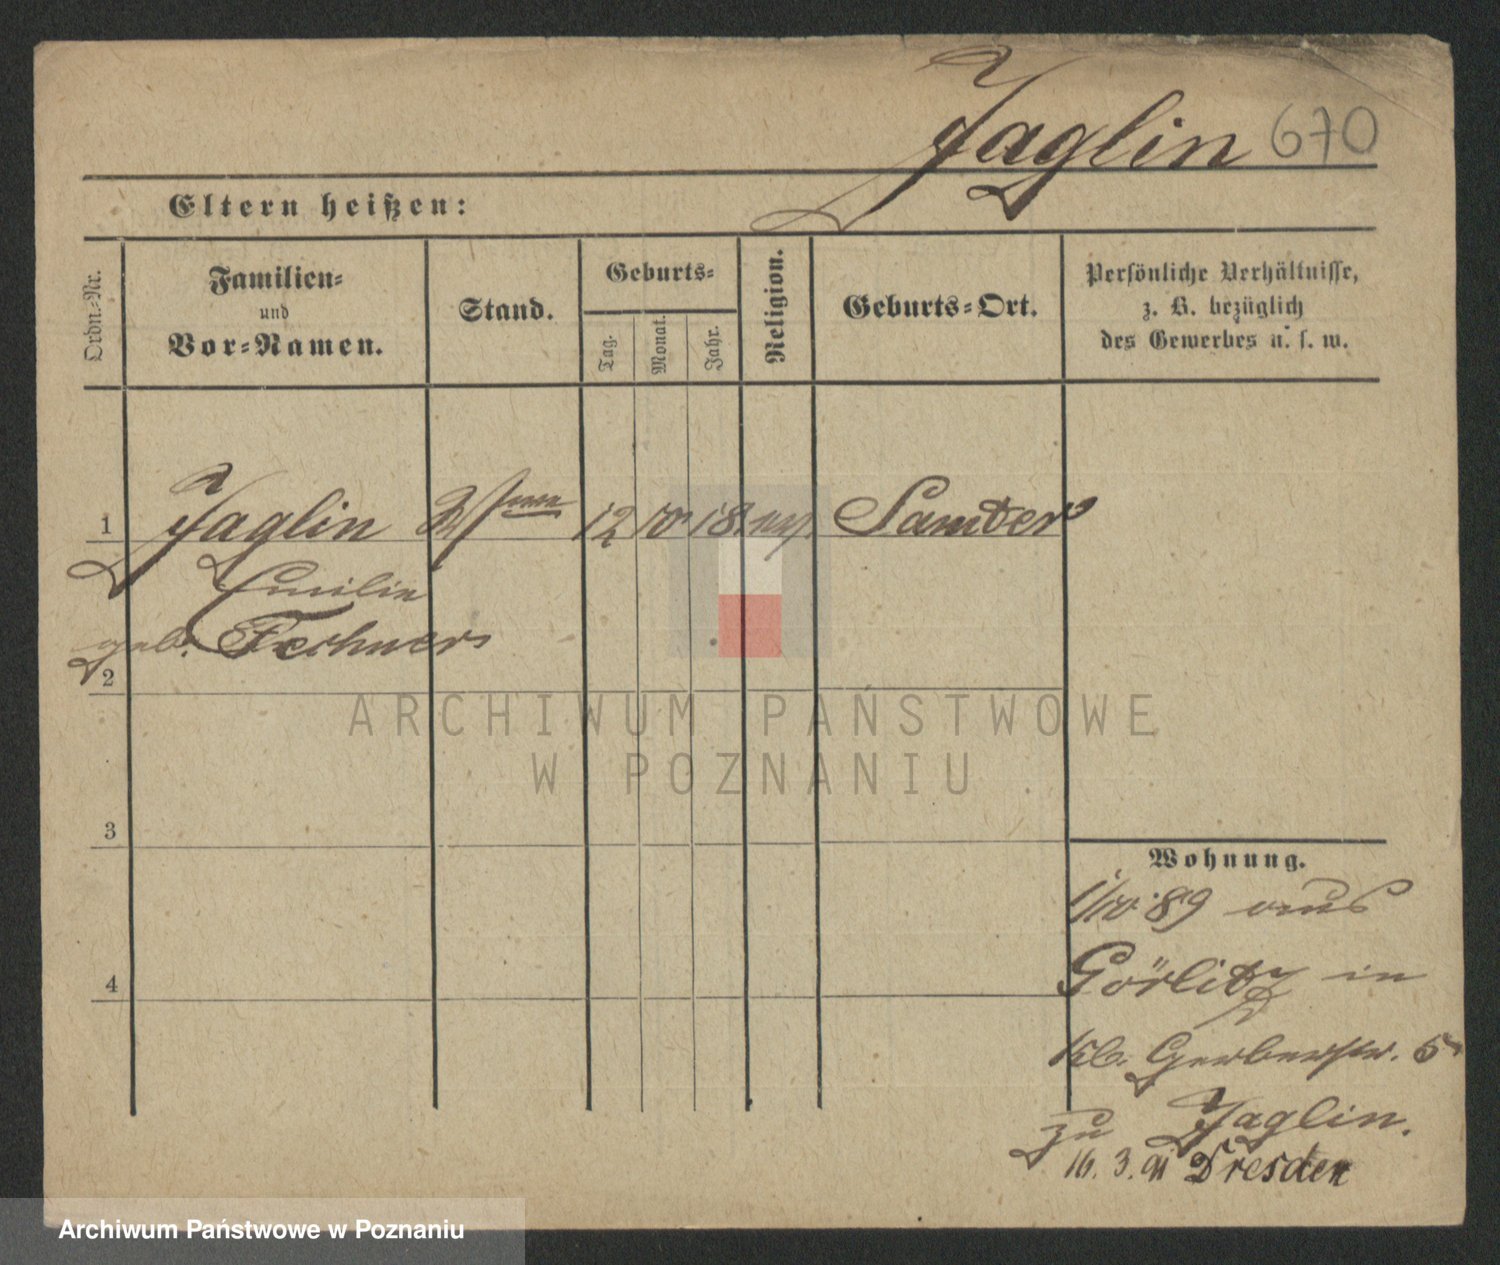 Jaglin 670
Eltern heißen:
Ordn.-Nr.
Familien-
und
Vor-Namen.
Stand.
Geburts-
Tag.
Monat.
Jahr.
Religion.
Geburts-Ort.
Persönliche Verhältnisse,
z. B. bezüglich
des Gewerbes u. s. w.
1 Jaglin 12 10 18 Samter
Emilie
geb. Fechner
2
ARCHIWUM PAŃSTWOWE
W POZNANIU
3
Wohnung.
1/10 89 aus
4
Görlitz in
Gerberstr. 5
zu Jaglin.
16. 3. 91 Dresden
Archiwum Państwowe w Poznaniu